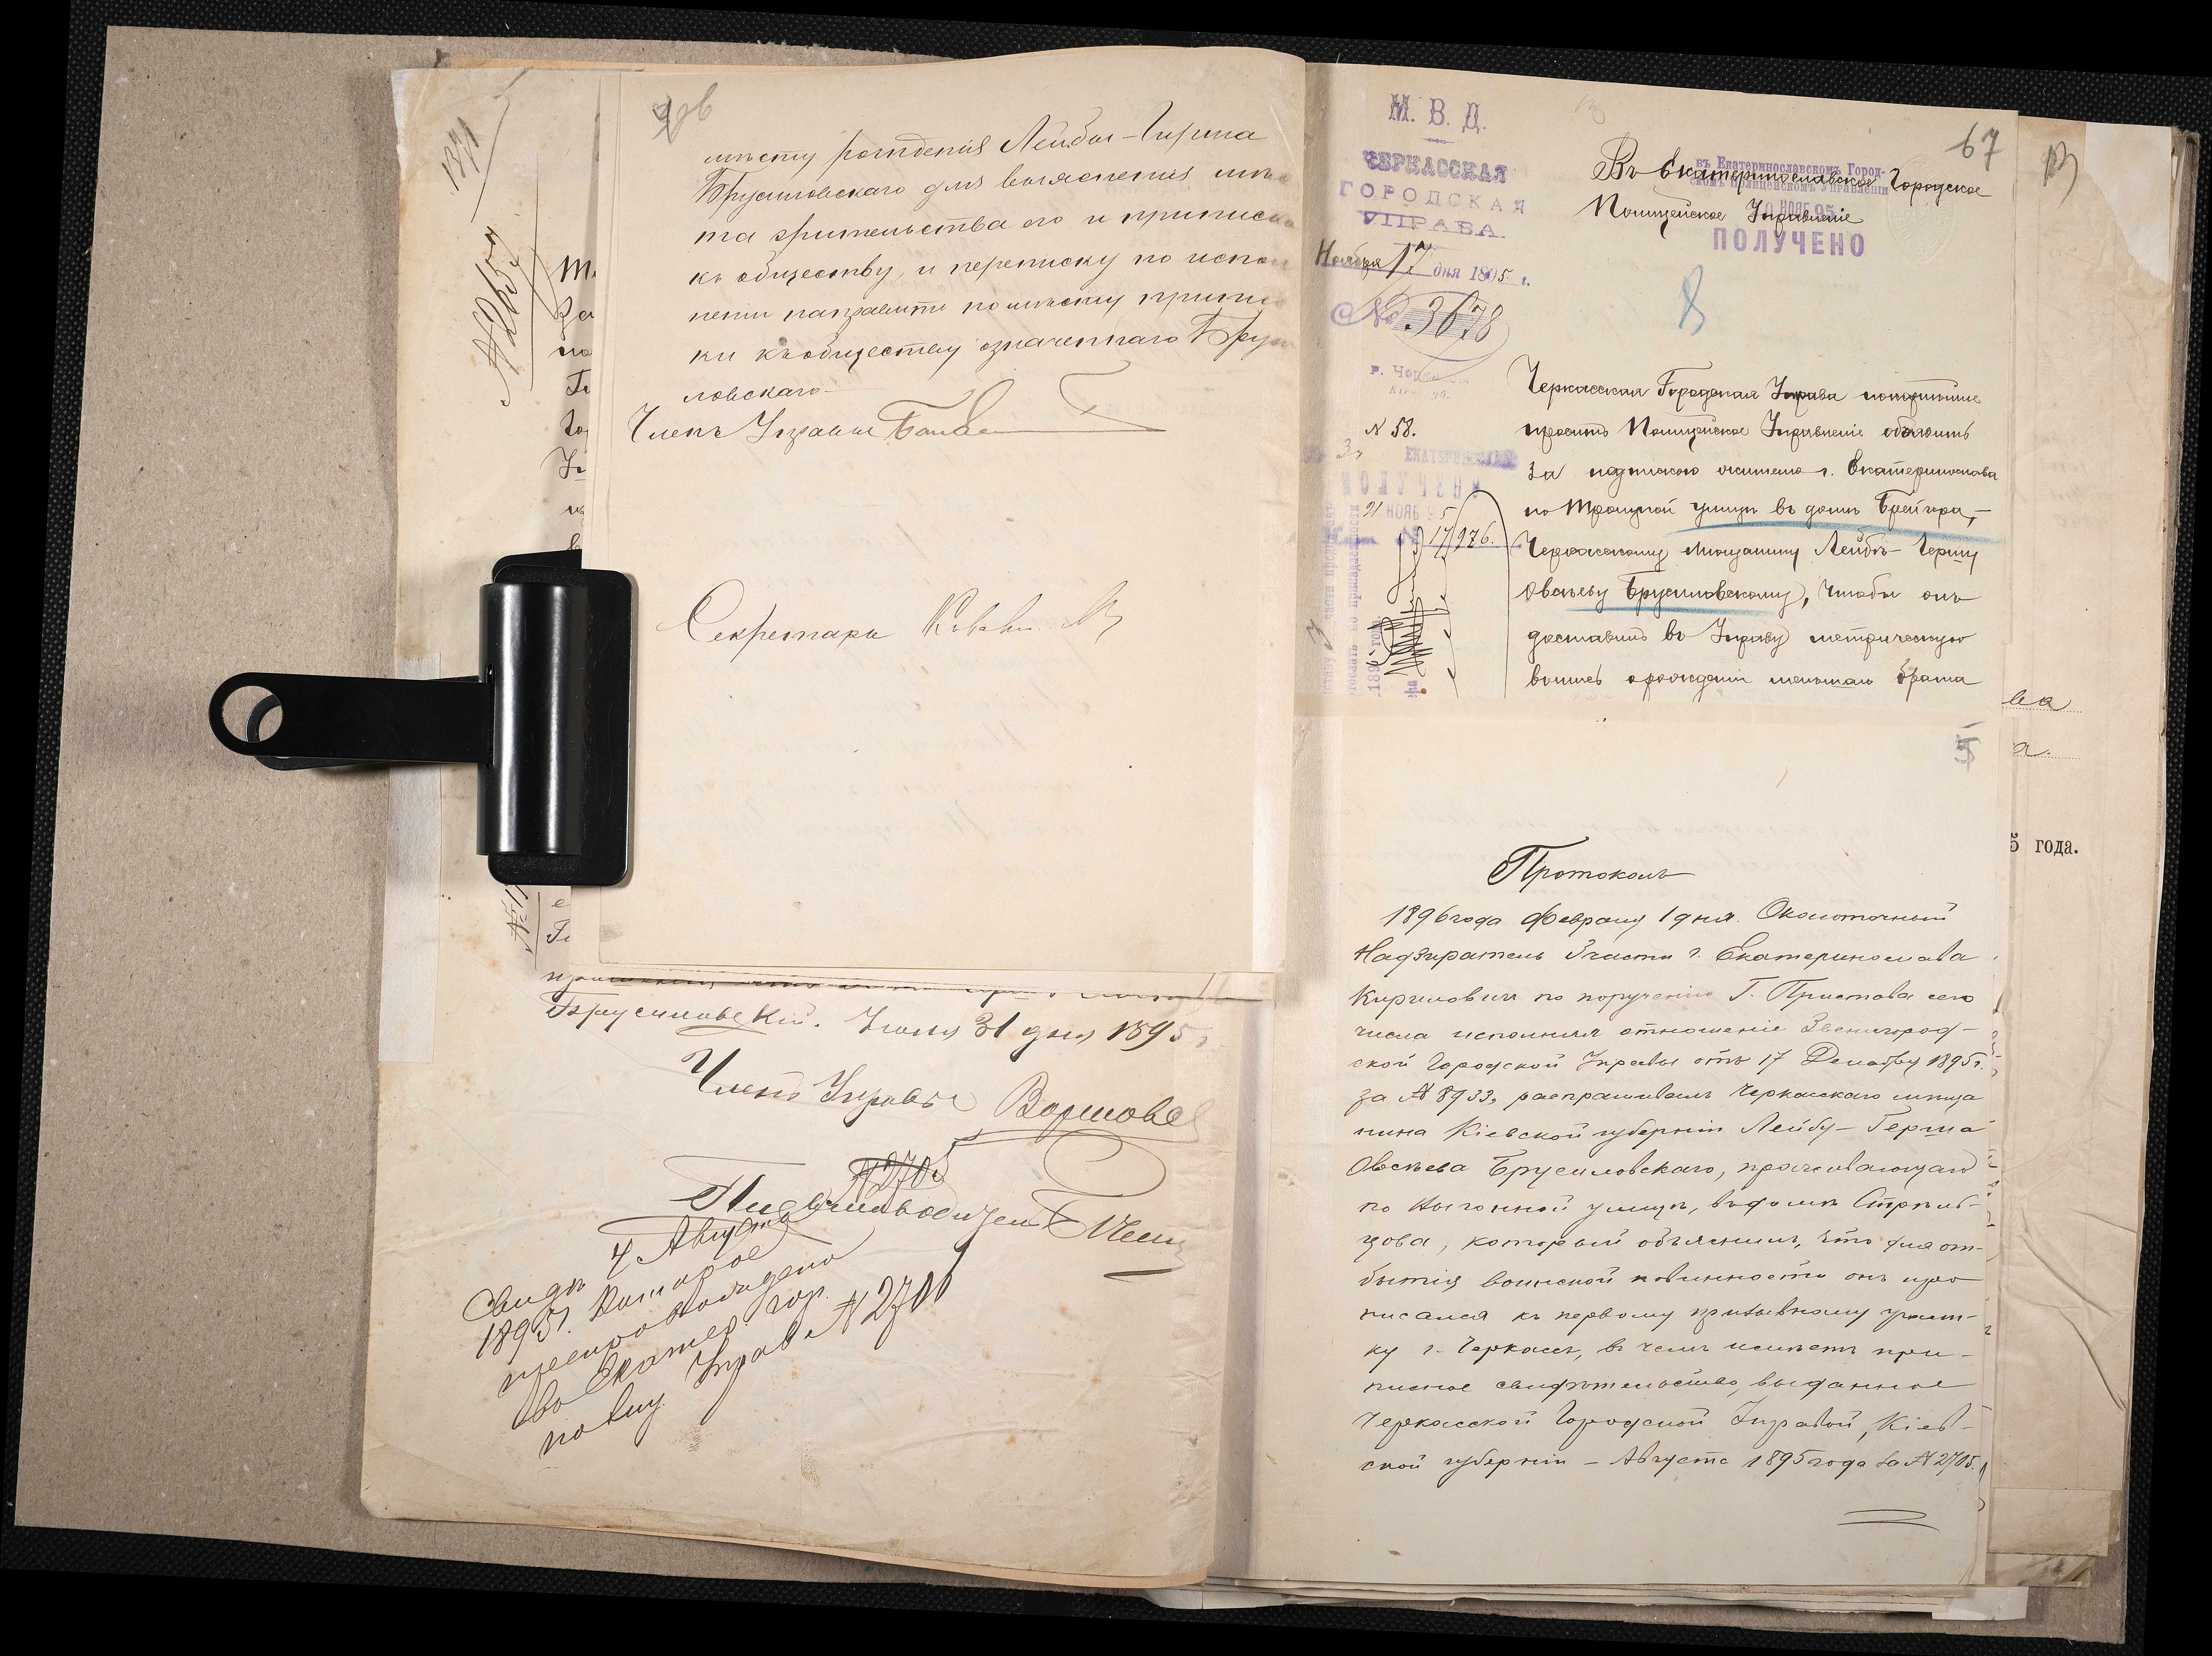 мѣсту рожденія Лейбы-Гирша
Брусиловскаго для выясненія мѣс
та жительства его и приписки
къ обществу, и переписку по испол
неніи направить по мѣсту припис
ки къ обществу означеннаго Бруси
ловскаго.
Членъ Управы
Секретарь
Брусиловскій. Іюля 31 дня 1895 г.
Членъ Управы
№ 2705
4 Августа
1895 г. которое
препровождено
№ 2700
1371
67
М. В. Д.
ЧЕРКАССКАЯ
ГОРОДСКАЯ
УПРАВА.
Ноября 17 дня 1895 г.
№ 3678
N 58.
ПОЛУЧЕНО
21 НОЯБ 95
17976.
Въ Екатеринославское Городское
Полицейское Управленіе
въ Екатеринославскомъ Город-
скомъ Полицейскомъ Управленіи
НОЯБ 95
ПОЛУЧЕНО
Черкасская Городская Управа покорнѣйше
проситъ Полицейское Управленіе объявить
за подпискою жителю г. Екатеринослава
по Троицкой улицѣ въ домѣ Брейгора,-
Черкасскому мѣщанину Лейбѣ-Гершу
Овсѣеву Брусиловскому, чтобы онъ
доставилъ въ Управу метрическую
выпись о рожденіи меньшаго брата
5
Протоколъ
1896 года Февраля 1 дня. Околоточный
Надзиратель 3 части г. Екатеринослава
Кириловичъ по порученію Г. Пристава сего
числа исполняя отношеніе Звенигород-
ской Городской Управы отъ 17 Декабря 1895 г.
за № 8933, распрашивалъ Черкасскаго мѣща
нина Кіевской губерніи Лейбу-Герша
Овсѣева Брусиловскаго, проживающаго
по улицѣ, въ домѣ Стрѣль-
цова, который объяснилъ, что для от-
бытія воинской повинности онъ при
писался къ первому призывному участ-
ку г. Черкасъ, въ чемъ имѣетъ при-
писное свидѣтельство, выданное
Черкасской Городской Управой, Кіев-
ской губерніи - Августа 1895 года за № 2705.
5 года.